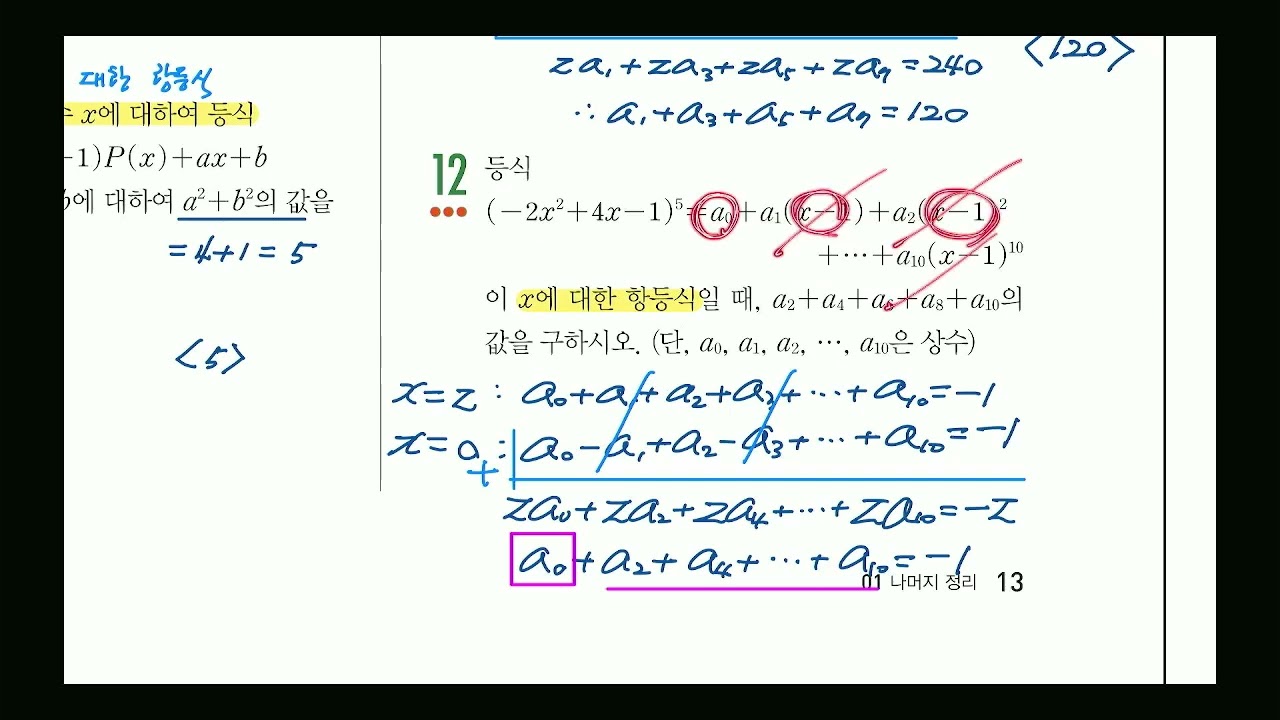 대한 항등식
x에 대하여 등식
-1)P(x)+ax+b
에 대하여 a²+b²의 값을
=4+1=5
<5>
<120>
2a₁+2a₃+2a₅+2a₇=240
∴ a₁+a₃+a₅+a₇=120
12 등식
(-2x²+4x-1)⁵=a₀+a₁(x-1)+a₂(x-1)²
+⋯+a₁₀(x-1)¹⁰
이 x에 대한 항등식일 때, a₂+a₄+a₆+a₈+a₁₀의
값을 구하시오. (단, a₀, a₁, a₂, ⋯, a₁₀은 상수)
x=2 : a₀+a₁+a₂+a₃+⋯+a₁₀=-1
x=0 : a₀-a₁+a₂-a₃+⋯+a₁₀=-1
+
2a₀+2a₂+2a₄+⋯+2a₁₀=-2
a₀+a₂+a₄+⋯+a₁₀=-1
01 나머지 정리 13